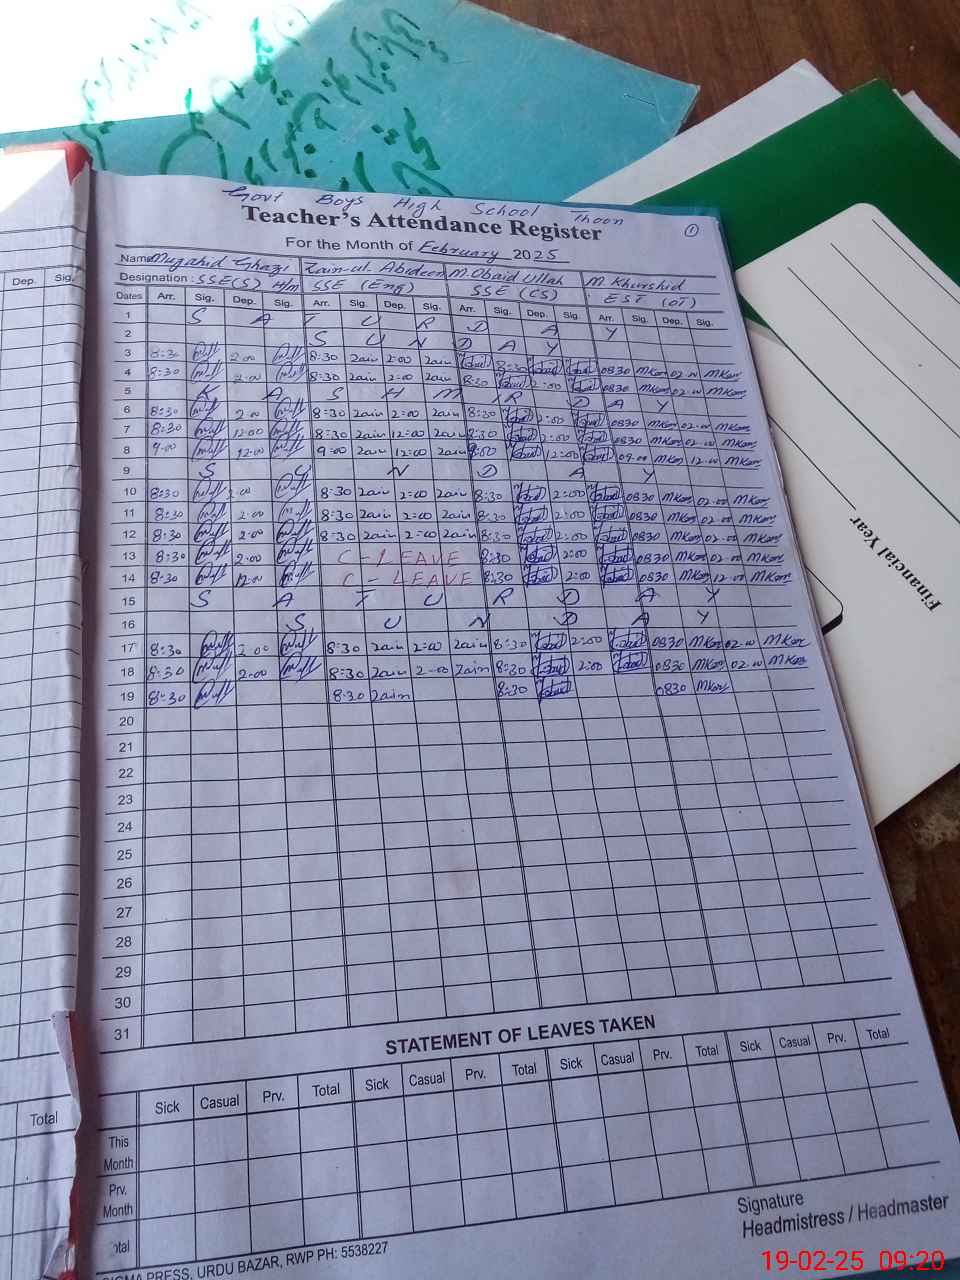 Govt Boys High School Thoon
Teacher's Attendance Register
1
For the Month of February 2025
Name Mujahid Ghazi Zain-ul-Abideen M.Obaid Ullah M. Khurshid
Dep. Sig.
Designation: SSE(S) H/m SSE (Eng) SSE (CS) EST (OT)
Dates Arr. Sig. Dep. Sig. Arr. Sig. Dep. Sig. Arr. Sig. Dep. Sig. Arr. Sig. Dep. Sig.
1 S A T U R D A Y
2 S U N D A Y
3 8:30 2:00 8:30 Zain 2:00 Zain 8:30 0830 MKam 02.00 MKam
4 8:30 2:00 8:30 Zain 2:00 Zain 8:30 2:00 0830 MKam 02.00 MKam
5 K A S H M I R D A Y
6 8:30 2:00 8:30 Zain 2:00 Zain 8:30 2:00 0830 MKam 02.00 MKam
7 8:30 12:00 8:30 Zain 12:00 Zain 8:30 2:00 0830 MKam 02.00 MKam
8 9:00 12:00 9:00 Zain 12:00 Zain 9:00 12:00 09.00 MKam 12.00 MKam
9 S U N D A Y
10 8:30 2:00 8:30 Zain 2:00 Zain 8:30 2:00 0830 MKam 02.00 MKam
11 8:30 2:00 8:30 Zain 2:00 Zain 8:30 2:00 0830 MKam 02.00 MKam
12 8:30 2:00 8:30 Zain 2:00 Zain 8:30 2:00 0830 MKam 02.00 MKam
13 8:30 2:00 C-LEAVE 8:30 2:00 0830 MKam 02.00 MKam
14 8:30 12:00 C-LEAVE 8:30 2:00 0830 MKam 12.00 MKam
15 S A T U R D A Y
16 S U N D A Y
17 8:30 2:00 8:30 Zain 2:00 Zain 8:30 2:00 0830 MKam 02.00 MKam
18 8:30 2:00 8:30 Zain 2:00 Zain 8:30 2:00 0830 MKam 02.00 MKam
19 8:30 8:30 Zain 8:30 0830 MKam
20
21
22
23
24
25
26
27
28
29
30
31
Financial Year
STATEMENT OF LEAVES TAKEN
Sick Casual Prv. Total Sick Casual Prv. Total Sick Casual Prv. Total Sick Casual Prv. Total
Total
This Month
Prv. Month
Total
Signature
Headmistress / Headmaster
SIGMA PRESS, URDU BAZAR, RWP PH: 5538227
19-02-25 09:20